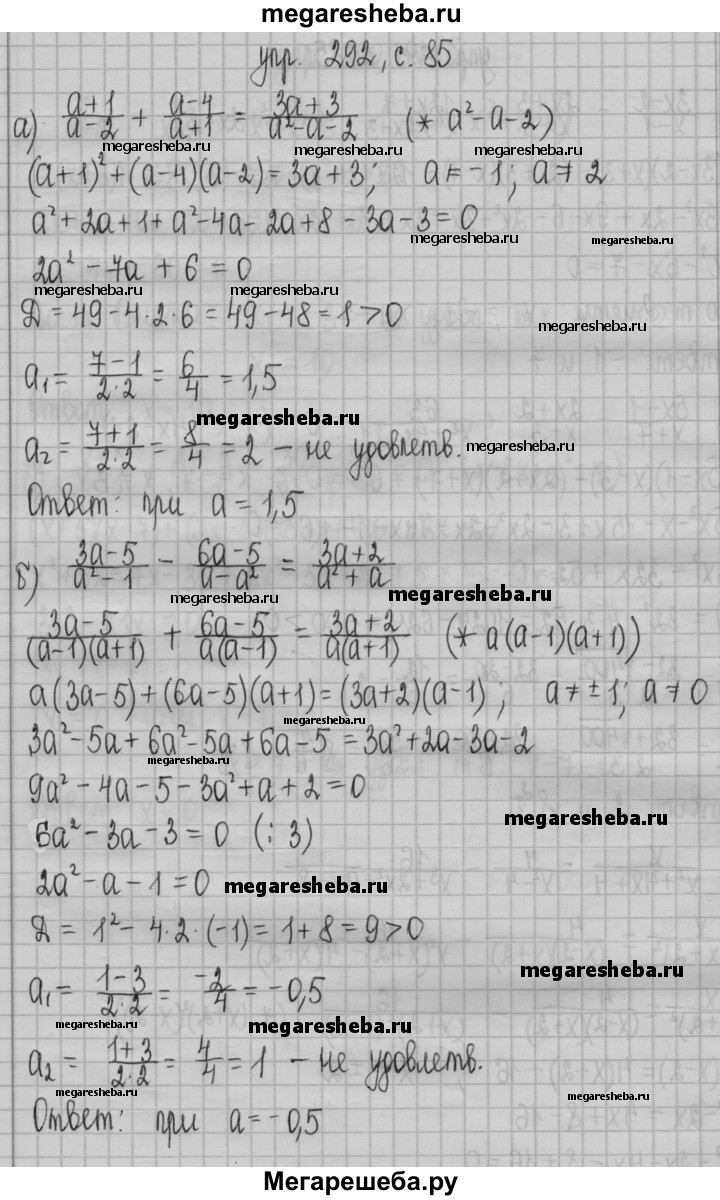 megaresheba.ru
упр. 292, с. 85
а) (a+1)/(a−2) + (a−4)/(a+1) = (3a+3)/(a²−a−2) (* a²−a−2)
megaresheba.ru megaresheba.ru megaresheba.ru
(a+1)² + (a−4)(a−2) = 3a+3; a ≠ −1; a ≠ 2
a² + 2a + 1 + a² − 4a − 2a + 8 − 3a − 3 = 0
megaresheba.ru megaresheba.ru
2a² − 7a + 6 = 0
megaresheba.ru megaresheba.ru
Д = 49 − 4·2·6 = 49 − 48 = 1 > 0
megaresheba.ru
a₁ = (7−1)/(2·2) = 6/4 = 1,5
megaresheba.ru
a₂ = (7+1)/(2·2) = 8/4 = 2 − не удовлетв.
megaresheba.ru
Ответ: при a = 1,5
б) (3a−5)/(a²−1) − (6a−5)/(a−a²) = (3a+2)/(a²+a)
megaresheba.ru megaresheba.ru
(3a−5)/((a−1)(a+1)) + (6a−5)/(a(a−1)) = (3a+2)/(a(a+1)) (* a(a−1)(a+1))
a(3a−5) + (6a−5)(a+1) = (3a+2)(a−1); a ≠ ±1; a ≠ 0
megaresheba.ru
3a² − 5a + 6a² − 5a + 6a − 5 = 3a² + 2a − 3a − 2
megaresheba.ru
9a² − 4a − 5 − 3a² + a + 2 = 0
megaresheba.ru
6a² − 3a − 3 = 0 (: 3)
2a² − a − 1 = 0
megaresheba.ru
Д = 1² − 4·2·(−1) = 1 + 8 = 9 > 0
megaresheba.ru
a₁ = (1−3)/(2·2) = −2/4 = −0,5
megaresheba.ru megaresheba.ru
a₂ = (1+3)/(2·2) = 4/4 = 1 − не удовлетв.
megaresheba.ru megaresheba.ru
Ответ: при a = −0,5
Мегарешеба.ру